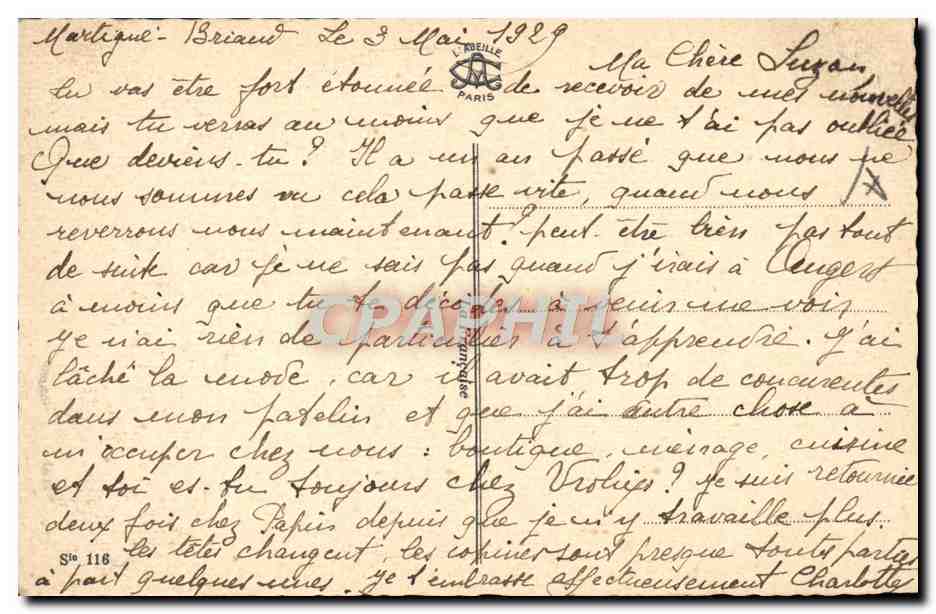 Martigné-Briand Le 3 Mai 1929
L'ABEILLE
PARIS
Ma Chère Suzan
tu vas être fort étonnée de recevoir de mes nouvelles
mais tu verras au moins que je ne t'ai pas oubliée
Que deviens-tu? Il a un an passé que nous ne
nous sommes vu cela passe vite, quand nous
reverrons nous maintenant? peut-être bien pas tout
de suite car je ne sais pas quand j'irais à Angers
à moins que tu te décides à venir me voir
je n'ai rien de particulier à t'apprendre. J'ai
lâché la mode, car il avait trop de concurentes
dans mon patelin et que j'ai autre chose à
m'occuper chez nous: boutique, ménage, cuisine
et toi es-tu toujours chez ? je suis retournée
deux fois chez Papin depuis que je n'y travaille plus
les têtes changent, les copines sont presque toutes parties
à part quelques unes. je t'embrasse affectueusement Charlotte
Ste 116
la Française
CPAPHIL